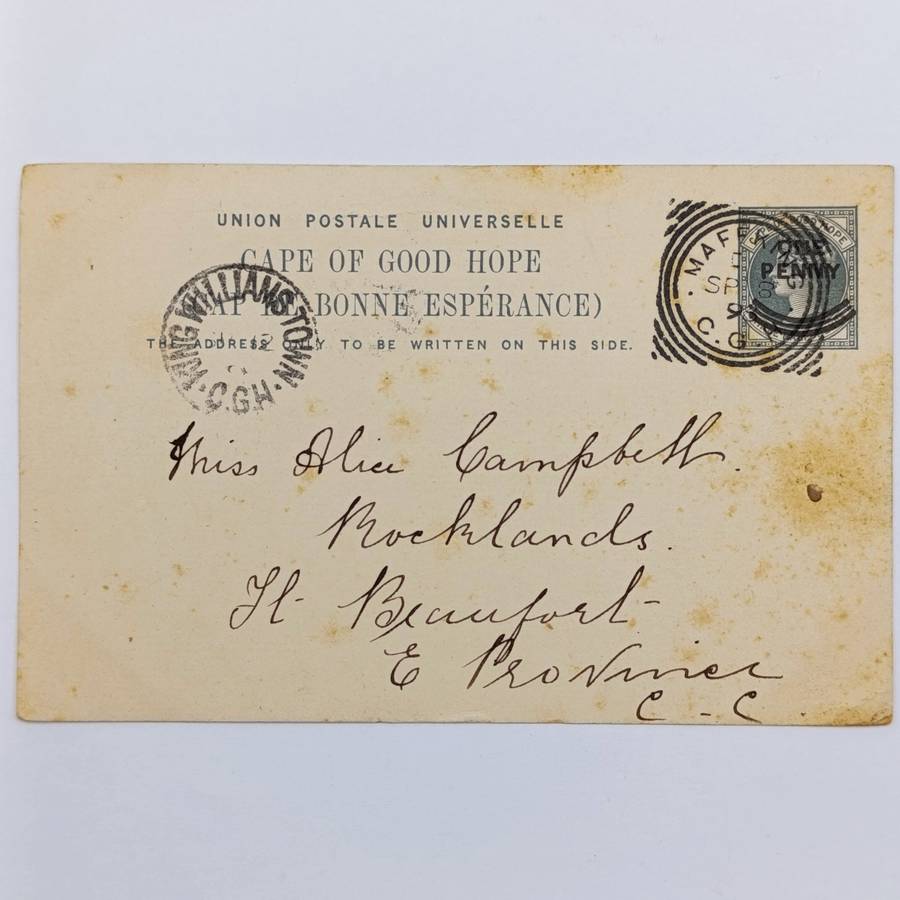 UNION POSTALE UNIVERSELLE
CAPE OF GOOD HOPE
BONNE ESPÉRANCE)
THE ADDRESS ONLY TO BE WRITTEN ON THIS SIDE.
KING WILLIAMSTOWN
C.G.H.
MAFEKING
SP 8
C.G.H.
GOOD HOPE
ONE
PENNY
Miss Alice Campbell.
Rocklands.
Ft- Beaufort-
E Province
C - C.